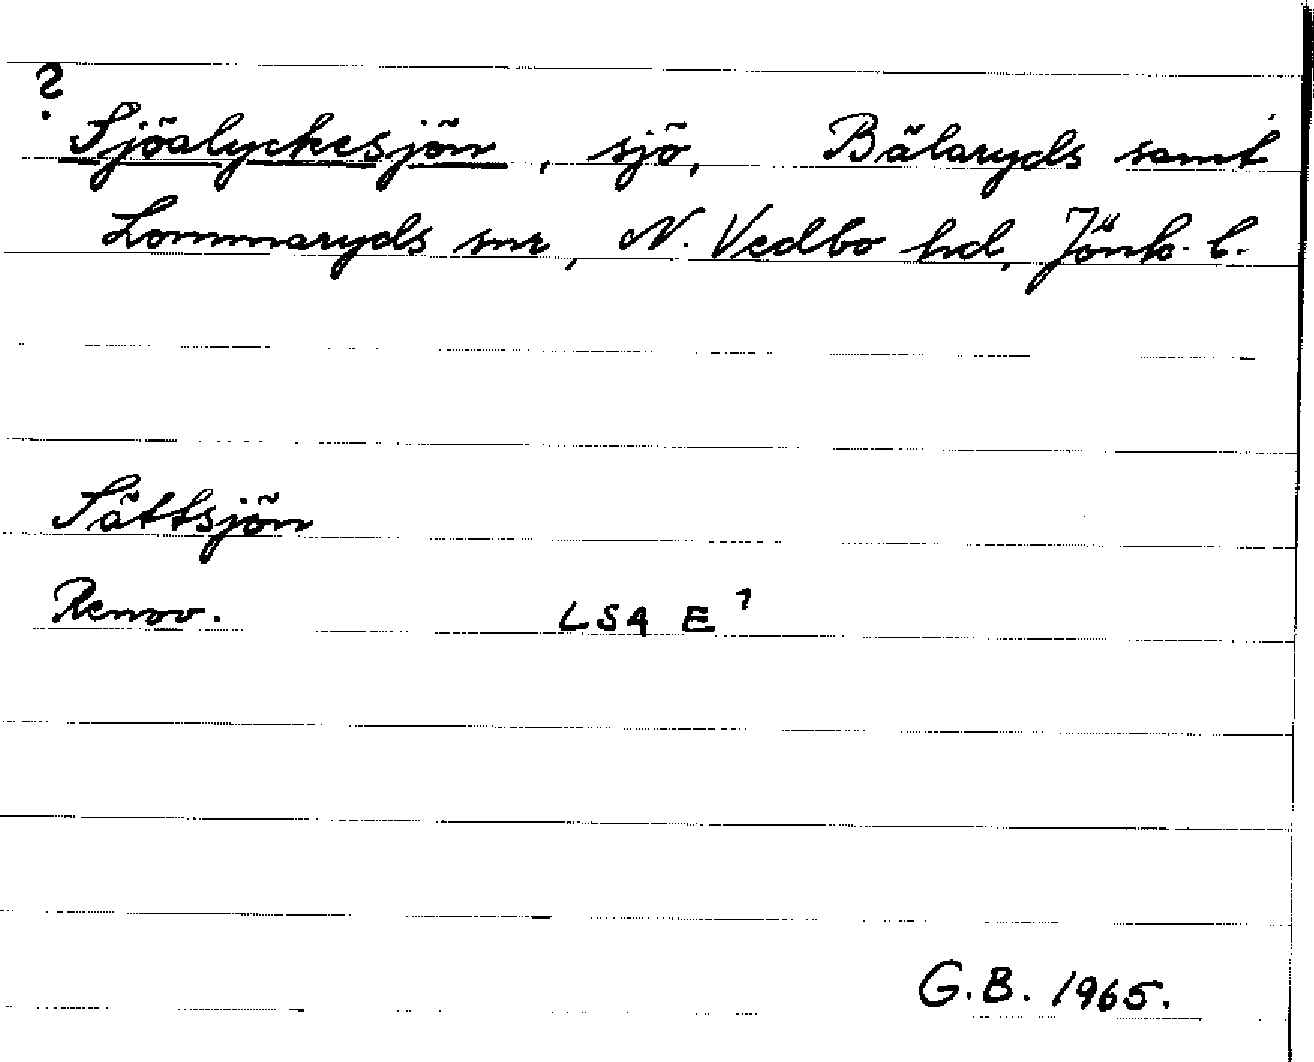 ?
Sjöalyckesjön, sjö, Bälaryds samt
Lommaryds snr, N. Vedbo hd, Jönk. l.
Sättsjön
Renov. LSA E 1
G.B. 1965.